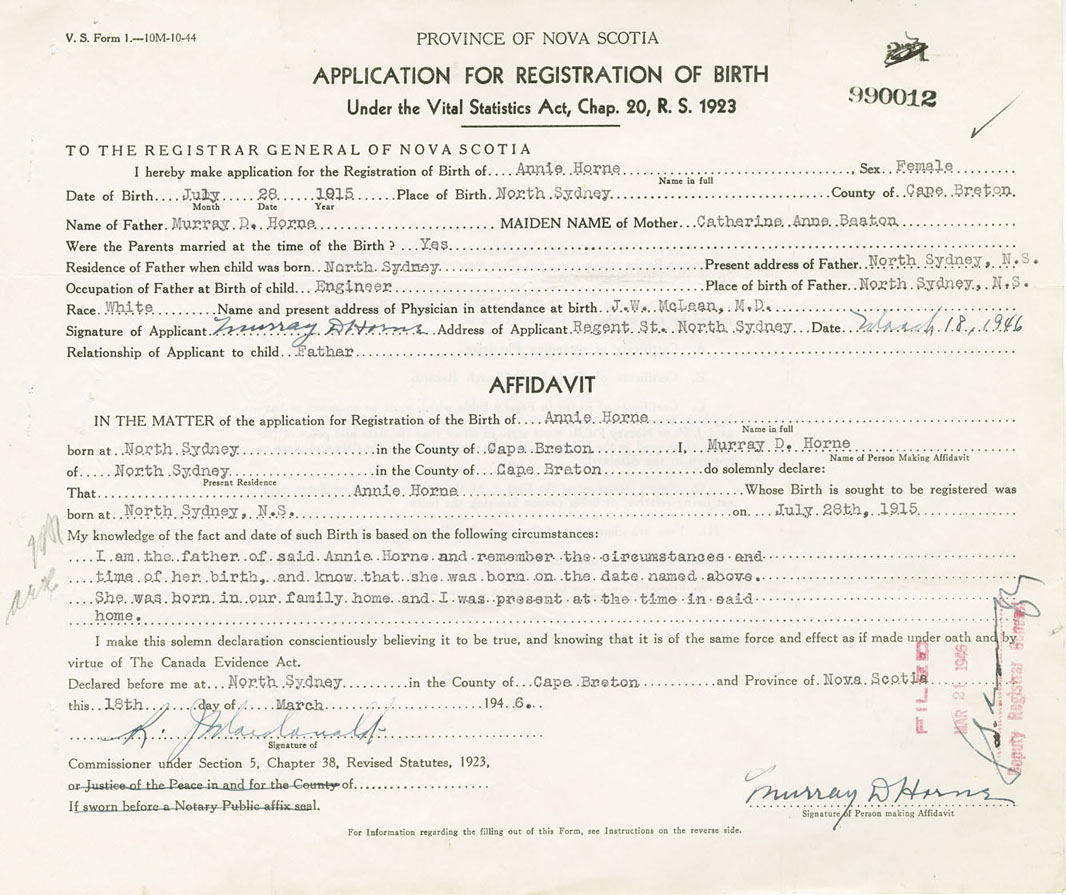 V. S. Form 1.—10M-10-44
PROVINCE OF NOVA SCOTIA
APPLICATION FOR REGISTRATION OF BIRTH
990012
Under the Vital Statistics Act, Chap. 20, R. S. 1923
TO THE REGISTRAR GENERAL OF NOVA SCOTIA
I hereby make application for the Registration of Birth of Annie Horne, Sex Female
Name in full
Date of Birth July 28 1915 Place of Birth North Sydney County of Cape Breton
Month Date Year
Name of Father Murray D. Horne MAIDEN NAME of Mother Catherine Anne Beaton
Were the Parents married at the time of the Birth? Yes
Residence of Father when child was born North Sydney Present address of Father North Sydney, N.S.
Occupation of Father at Birth of child Engineer Place of birth of Father North Sydney, N.S.
Race White Name and present address of Physician in attendance at birth J.W. McLean, M.D.
Signature of Applicant Murray D Horne Address of Applicant Regent St. North Sydney Date March 18, 1946
Relationship of Applicant to child Father
AFFIDAVIT
IN THE MATTER of the application for Registration of the Birth of Annie Horne
Name in full
born at North Sydney in the County of Cape Breton I, Murray D. Horne
Name of Person Making Affidavit
of North Sydney in the County of Cape Breton do solemnly declare:
Present Residence
That Annie Horne Whose Birth is sought to be registered was
born at North Sydney, N.S. on July 28th, 1915
My knowledge of the fact and date of such Birth is based on the following circumstances:
I am the father of said Annie Horne and remember the circumstances and
time of her birth, and know that she was born on the date named above.
She was born in our family home and I was present at the time in said
home.
I make this solemn declaration conscientiously believing it to be true, and knowing that it is of the same force and effect as if made under oath and by
virtue of The Canada Evidence Act.
Declared before me at North Sydney in the County of Cape Breton and Province of Nova Scotia
this 18th day of March 194 6.
R. J Macdonald
Signature of
Commissioner under Section 5, Chapter 38, Revised Statutes, 1923,
or Justice of the Peace in and for the County of
If sworn before a Notary Public affix seal.
Murray D Horne
Signature of Person making Affidavit
For Information regarding the filling out of this Form, see Instructions on the reverse side.
FILED
MAR 21 1946
Deputy Registrar General